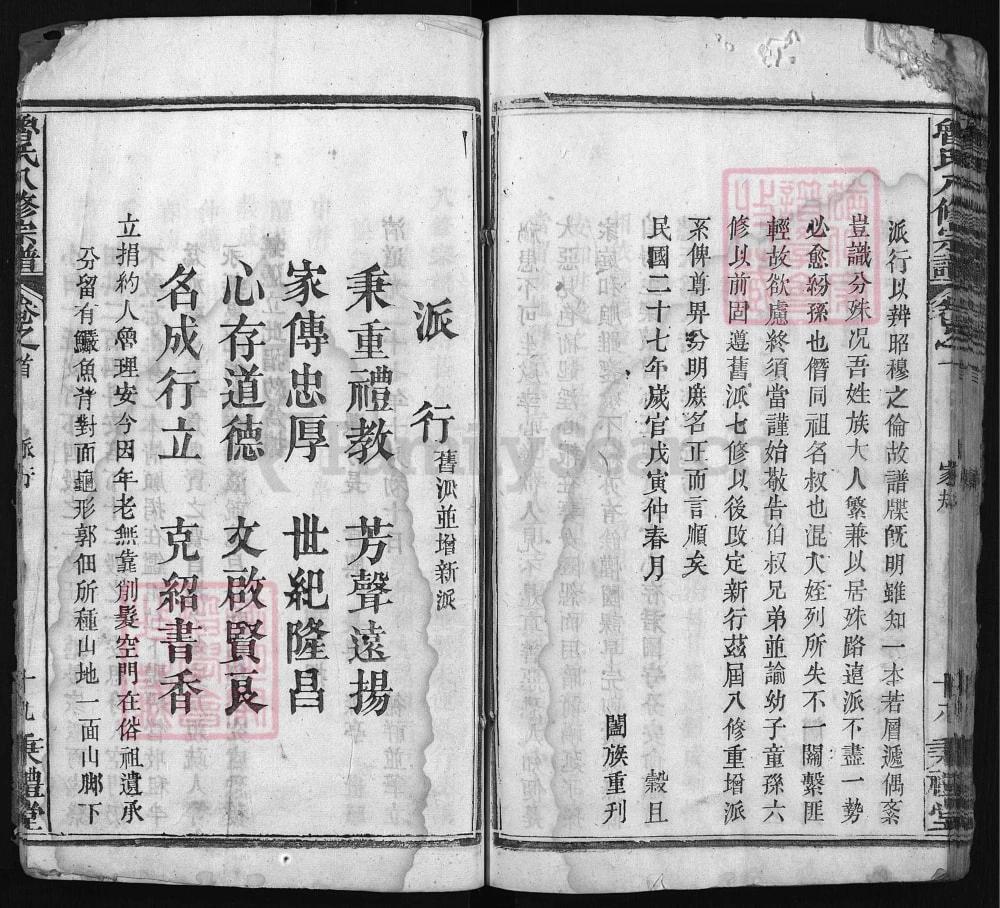 魯氏八修宗譜
卷之一
家規
十八
秉禮堂
派行以辨昭穆之倫故譜牒旣明雖知一本若層遞偶紊
豈識分殊况吾姓族大人繁兼以居殊路遠派不盡一勢
必愈紛孫也僭同祖名叔也混於姪列所失不一關繫匪
輕故欲慮終須當謹始敬告伯叔兄弟並諭幼子童孫六
修以前固遵舊派七修以後改定新行茲屆八修重增派
系俾尊界分明庶名正而言順矣
民國二十七年歲官戊寅仲春月 穀且
闔族重刊
派行 舊派並增新派
秉重禮教 芳聲遠揚
家傳忠厚 世紀隆昌
心存道德 文啟賢良
名成行立 克紹書香
立捐約人魯理安今因年老無靠削髮空門在俗祖遺承
分留有鱖魚背對面 形郭佃所種山地一面山脚下
魯氏八修宗譜
卷之首
派行
十九
秉禮堂
FamilySearch